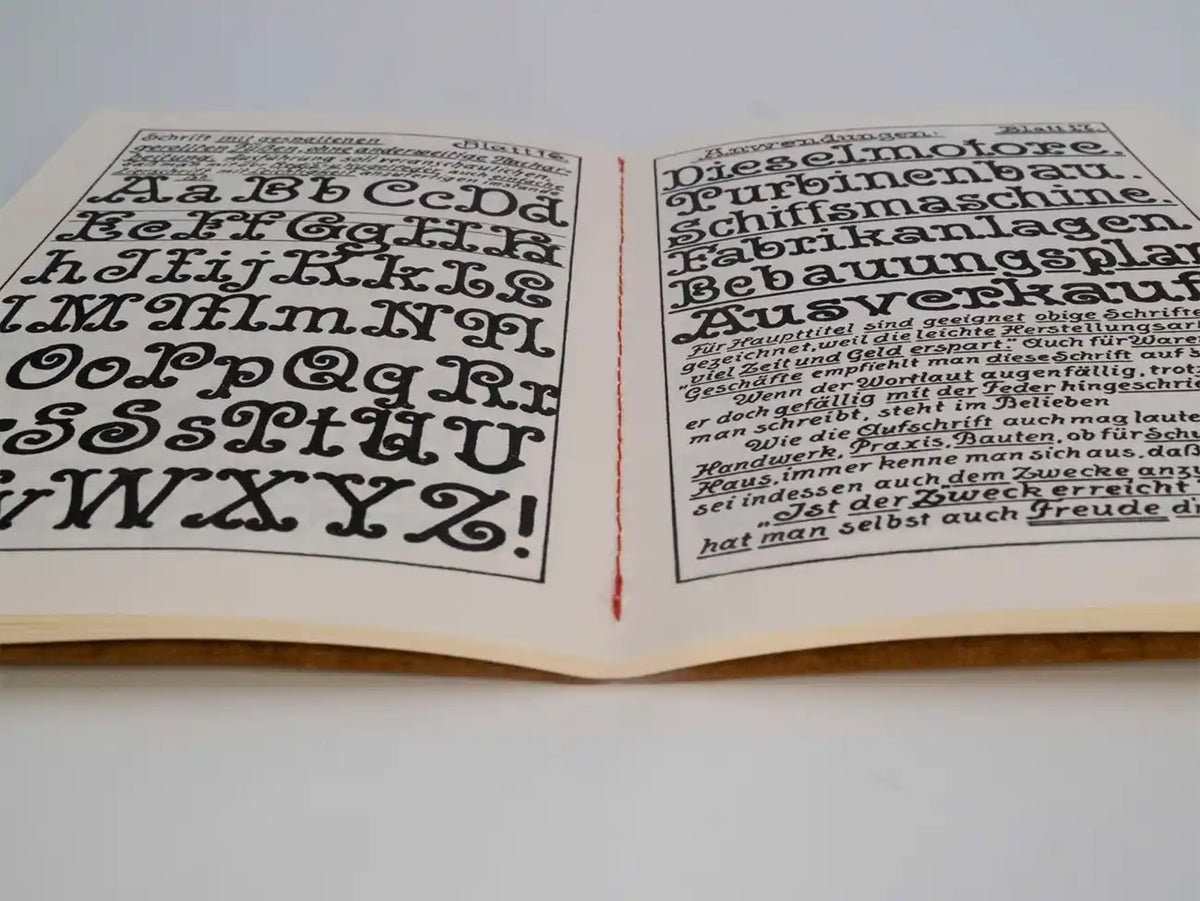 Schrift mit gespaltenen
Blatt 16.
gerollten Füßen, ohne anderweitige Nachar-
beitung. Ausführung soll veranschaulichen
Aa Bb Cc Dd
Ee Ff Gg H H
h J I i j K k L L
l M M m N N
O o P p Q q R r
S S s T t U U
v W X Y Z!
Anwendungen:
Blatt 17.
Dieselmotore.
Turbinenbau.
Schiffsmaschine.
Fabrikanlagen
Bebauungsplan
Ausverkauf
Für Haupttitel sind geeignet obige Schrifte
gezeichnet, weil die leichte Herstellungsar
"viel Zeit und Geld erspart." Auch für Ware
"Geschäfte empfiehlt man diese Schrift auf
Wenn der Wortlaut augenfällig, trotz
er doch gefällig mit der Feder hingeschri
man schreibt, steht im Belieben
Wie die Aufschrift auch mag laute
Handwerk, Praxis, Bauten, ob für Sch
Haus, immer kenne man sich aus, daß
sei indessen auch dem Zwecke anz
"Ist der Zweck erreicht
hat man selbst auch Freude d